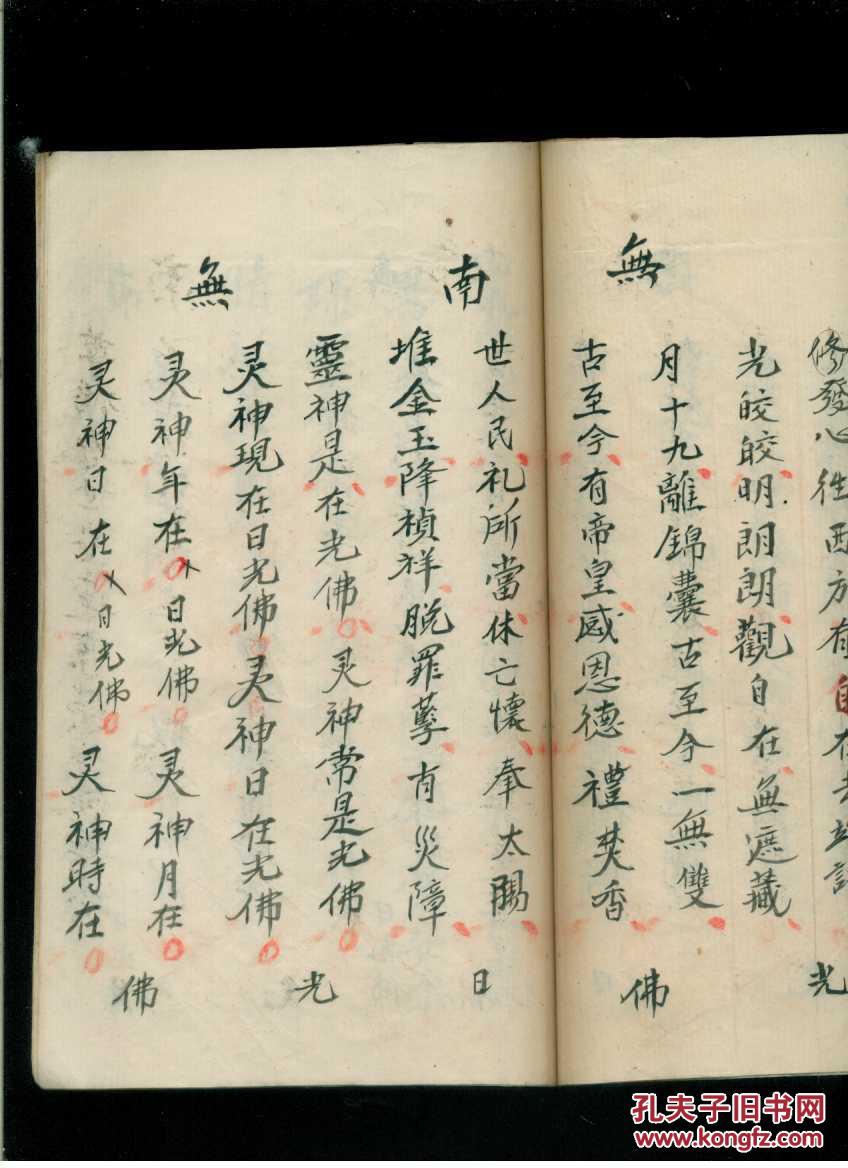 無
修發心徃西方有自在
光皎皎明朗朗觀自在無遮藏
月十九離錦囊古至今一無雙
古至今有帝皇感恩德禮焚香
光
佛
南
無
世人民礼所當休亡懷奉太陽
堆金玉降禎祥脫罪孽肖災障
靈神是在光佛灵神常是光佛
灵神現在日光佛灵神日在光佛
灵神年在日光佛灵神月在
灵神日在日光佛灵神時在
日
光
佛
孔夫子旧书网
www.kongfz.com